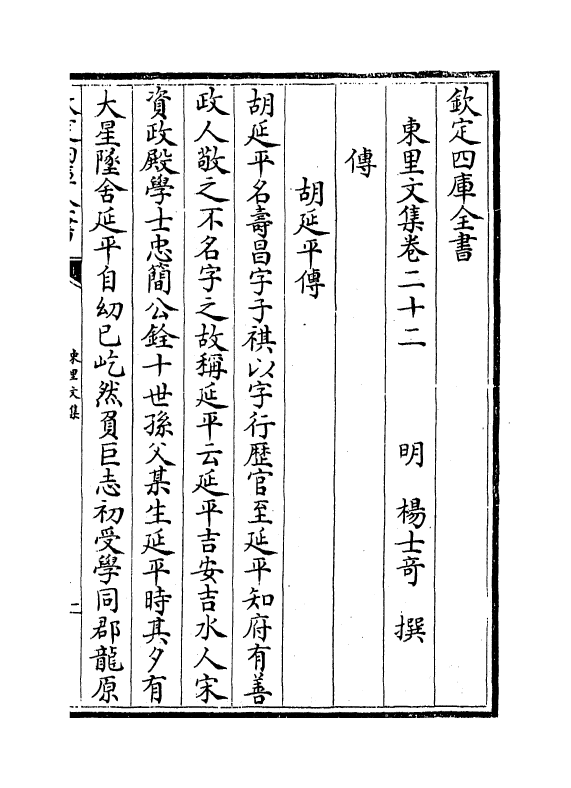 欽定四庫全書
東里文集卷二十二
明 楊士竒 撰
傳
胡延平傳
胡延平名壽昌字子祺以字行歴官至延平知府有善
政人敬之不名字之故稱延平云延平吉安吉水人宋
資政殿學士忠簡公銓十世孫父某生延平時其夕有
大星墜舍延平自幼已屹然負巨志初受學同郡龍原
東里文集